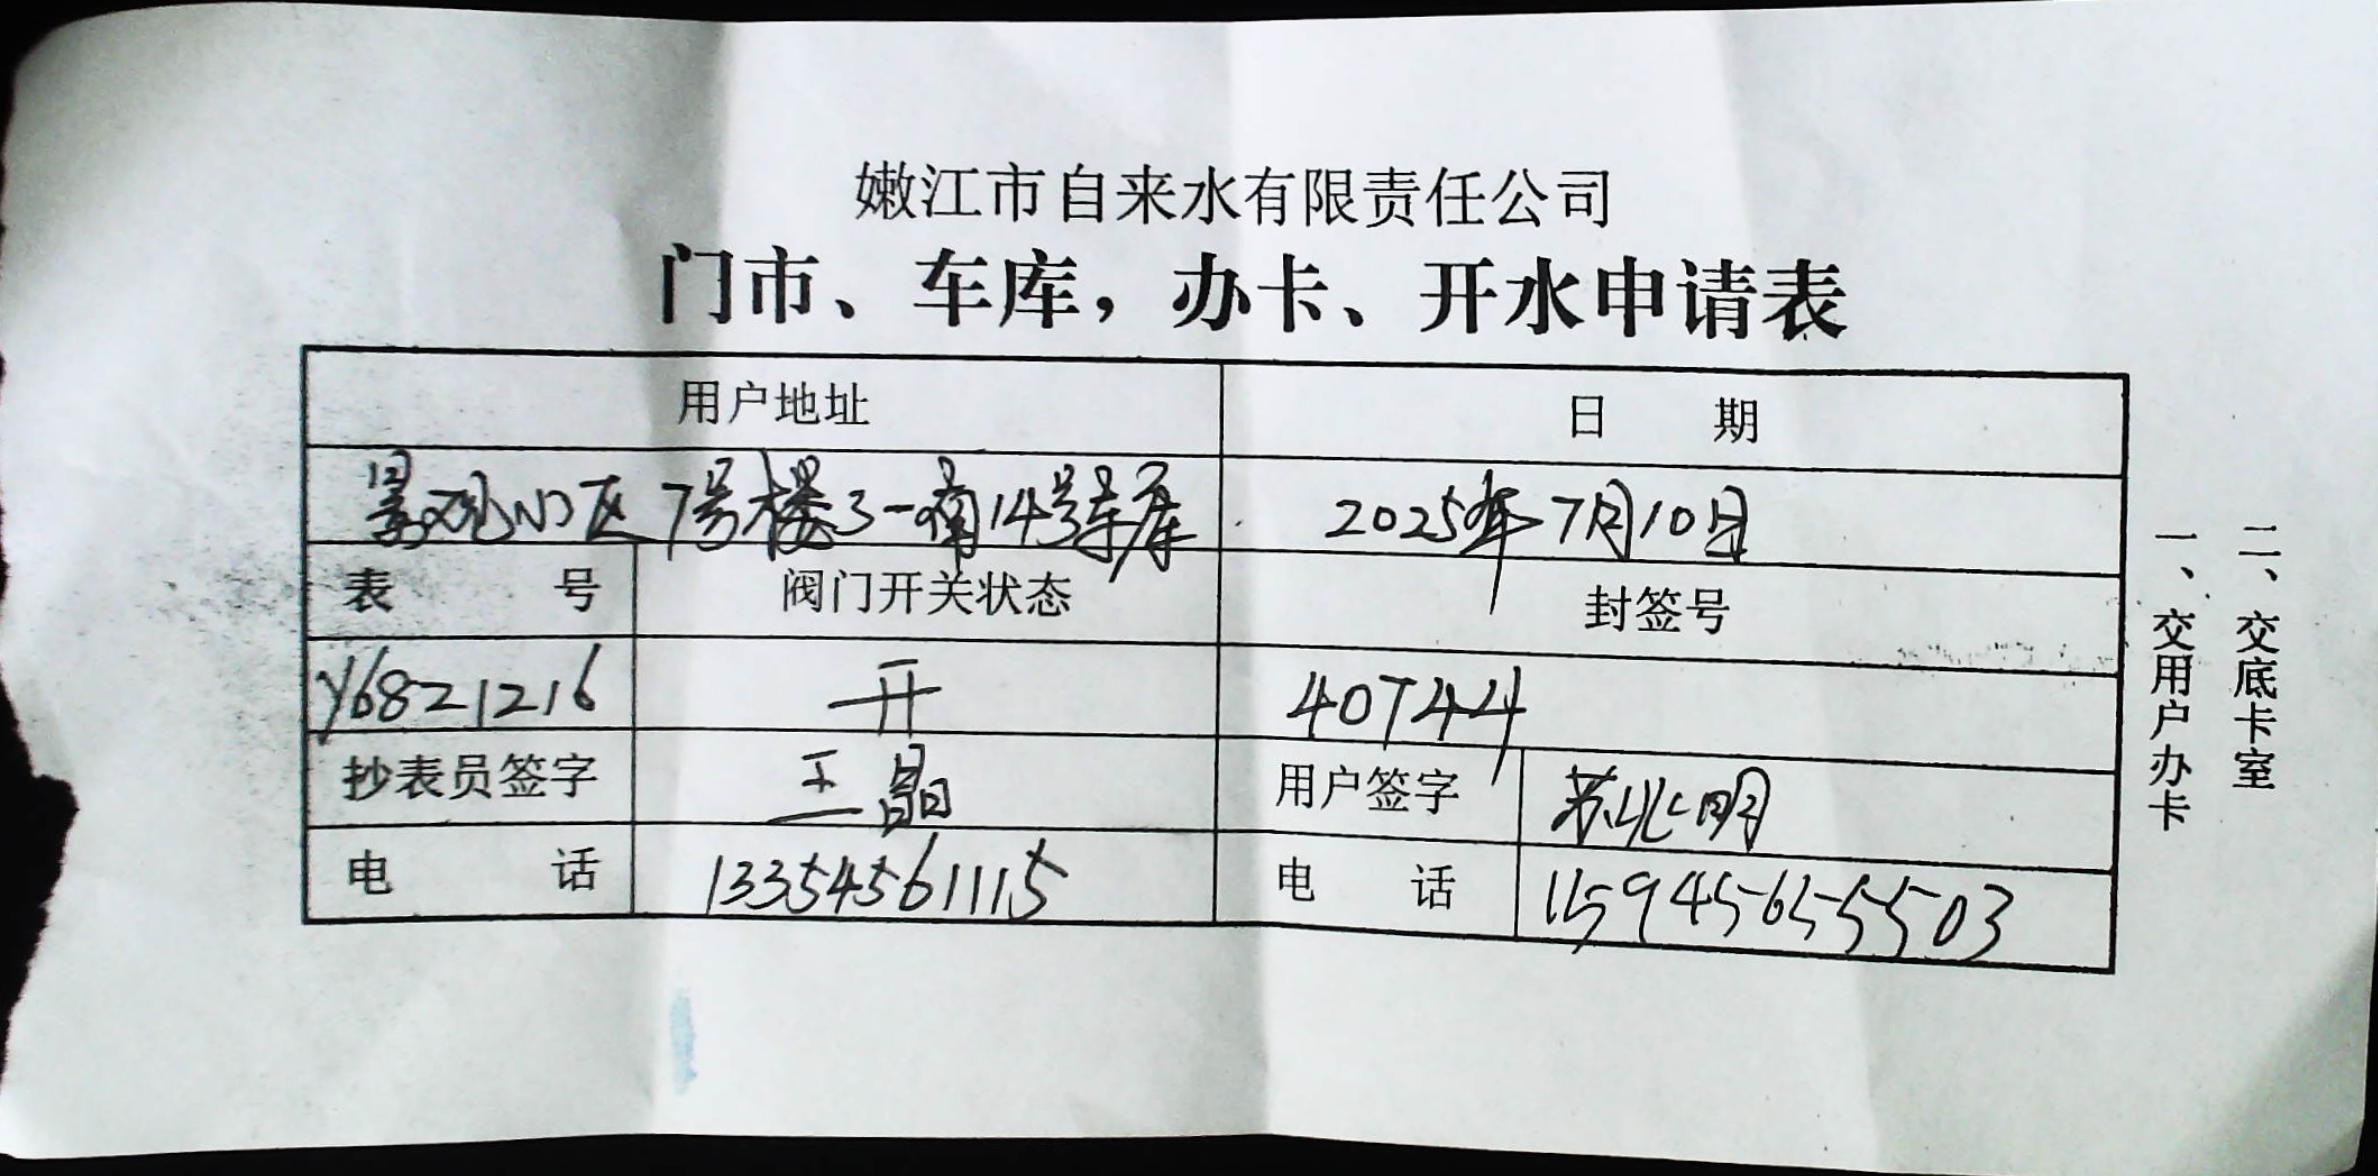 嫩江市自来水有限责任公司
门市、车库，办卡、开水申请表
用户地址 日 期
景观小区7号楼3-南14号车库 2025年7月10日
表 号 阀门开关状态 封签号
Y6821216 开 40744
抄表员签字 王晶 用户签字 苏兆明
电 话 13354561115 电 话 15945655503
一、交用户办卡
二、交底卡室